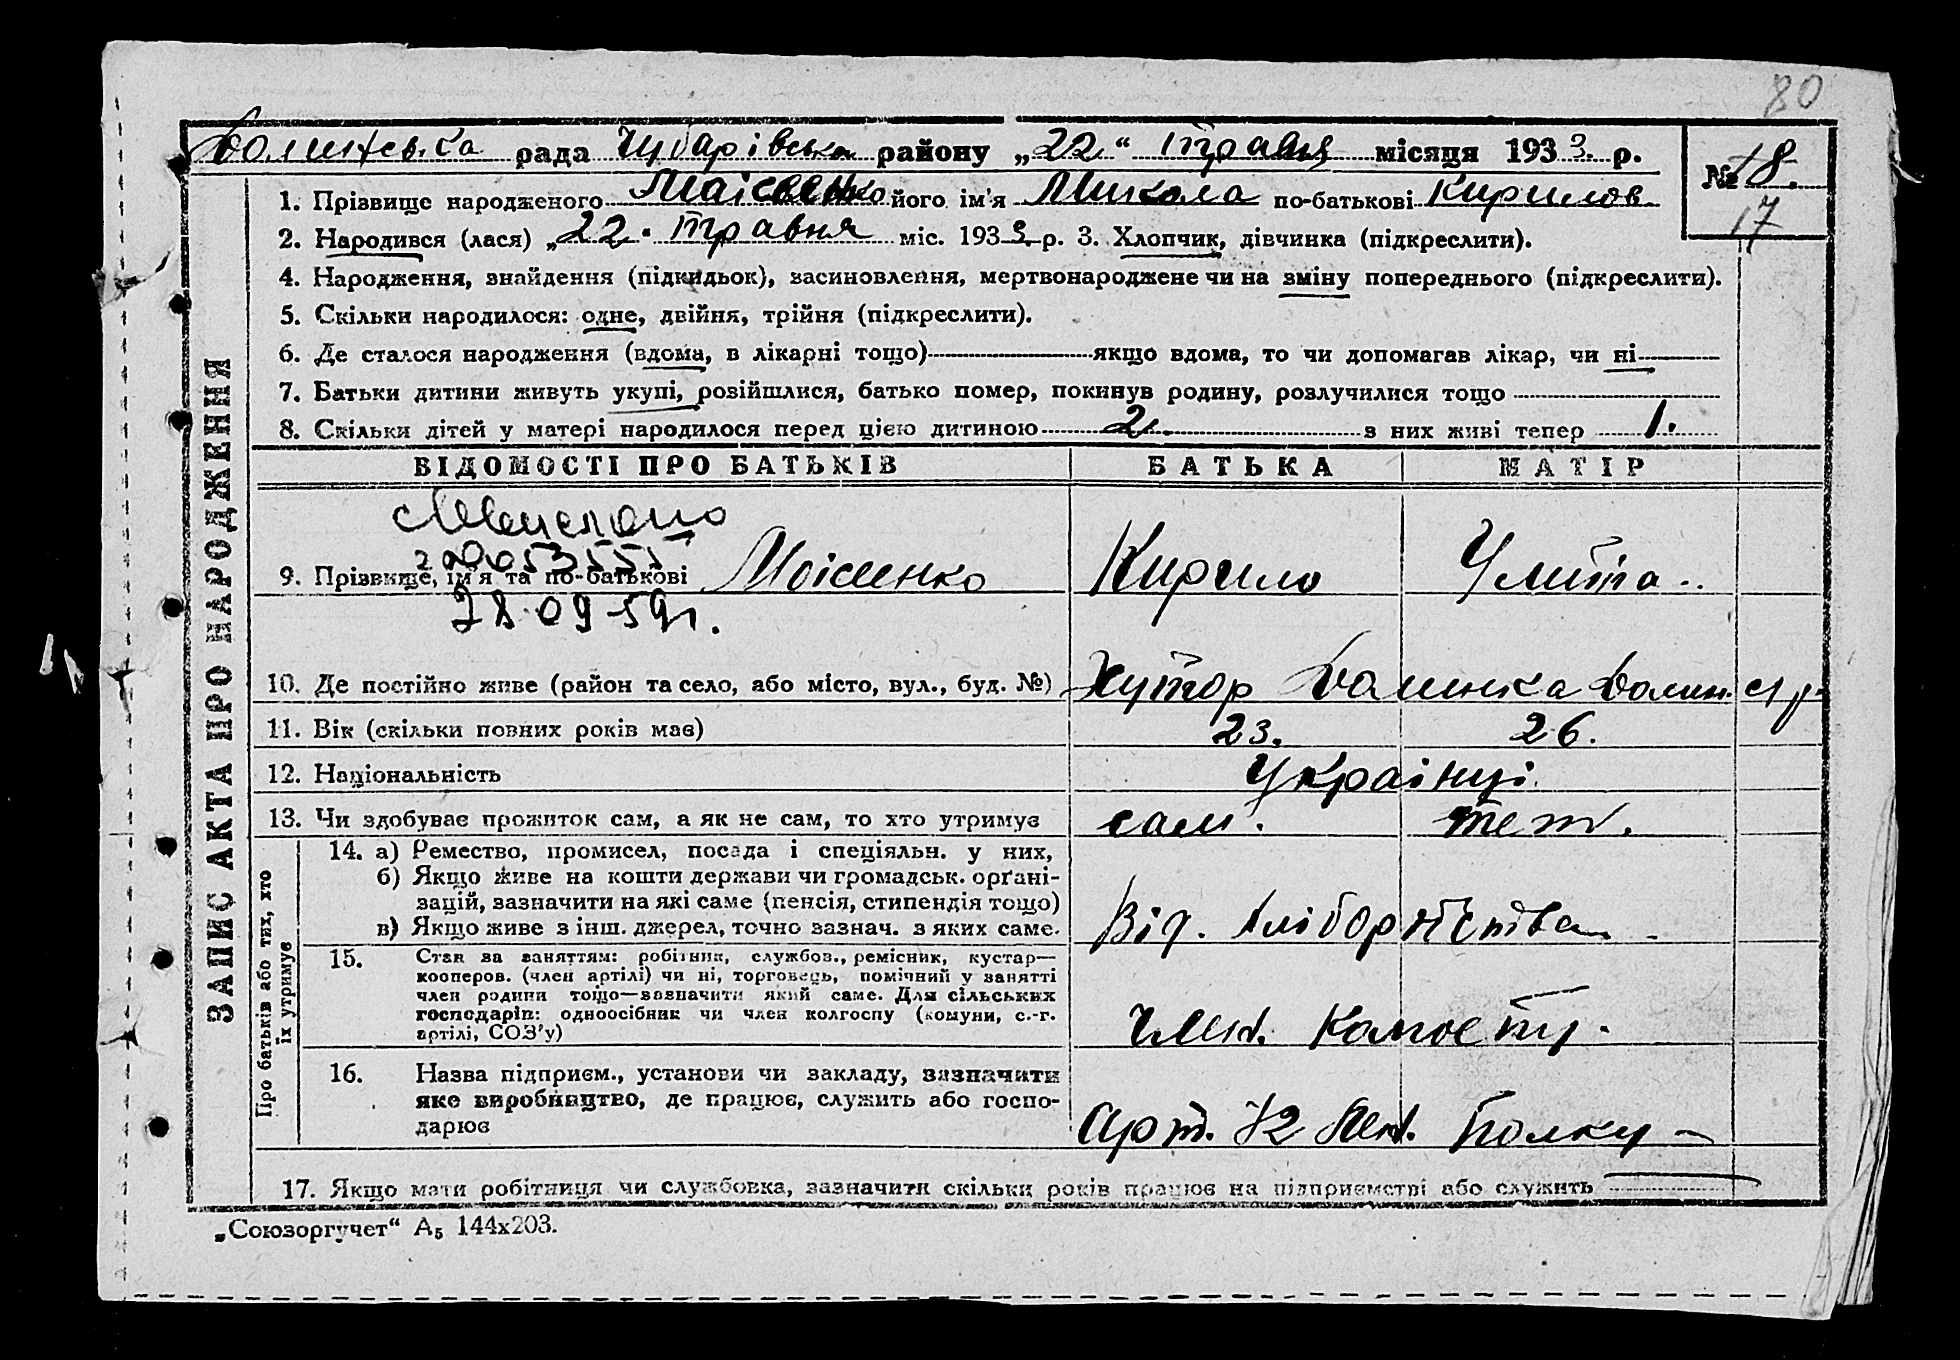 80
Долинська рада Чубарівська району „22“ травня місяця 1933. р. № 18.
17
1. Прізвище народженого Моісеенко його ім'я Микола по-батькові Кирилов
2. Народився (лася) „22. травня міс. 1933. р. 3. Хлопчик, дівчинка (підкреслити).
4. Народження, знайдення (підкидьок), засиновлення, мертвонароджене чи на зміну попереднього (підкреслити).
5. Скільки народилося: одне, двійня, трійня (підкреслити).
6. Де сталося народження (вдома, в лікарні тощо) якщо вдома, то чи допомагав лікар, чи ні
7. Батьки дитини живуть укупі, розійшлися, батько помер, покинув родину, розлучилися тощо
8. Скільки дітей у матері народилося перед цією дитиною 2. з них живі тепер 1.
ЗАПИС АКТА ПРО НАРОДЖЕННЯ
ВІДОМОСТІ ПРО БАТЬКІВ БАТЬКА МАТІР
9. Прізвище, ім'я та по-батькові Моісенко Кирило Улита
28.09-59г.
10. Де постійно живе (район та село, або місто, вул., буд. №) Хутор Долинка Долин. с/р
11. Вік (скільки повних років має) 23. 26.
12. Національність Українці
13. Чи здобуває прожиток сам, а як не сам, то хто утримує сам. теж.
Про батьків або тих, хто їх утримує
14. а) Ремество, промисел, посада і спеціяльн. у них,
б) Якщо живе на кошти держави чи громадськ. орґані-
зацій, зазначити на які саме (пенсія, стипендія тощо)
в) Якщо живе з інш. джерел, точно зазнач. з яких саме. Від. хліборобства
15. Стан за заняттям: робітник, службов., ремісник, кустар—
кооперов. (член артілі) чи ні, торговець, помічний у занятті
член родини тощо—зазначити який саме. Для сільських
господарів: одноосібник чи член колгоспу (комуни, с.-г.
артілі, СОЗ'у) Член. колгоспу.
16. Назва підприєм., установи чи закладу, зазначити
яке виробництво, де працює, служить або госпо-
дарює Арт. 72 полку —
17. Якщо мати робітниця чи службовка, зазначити скільки років працює на підприємстві або служить
„Союзоргучет“ А₅ 144х203.